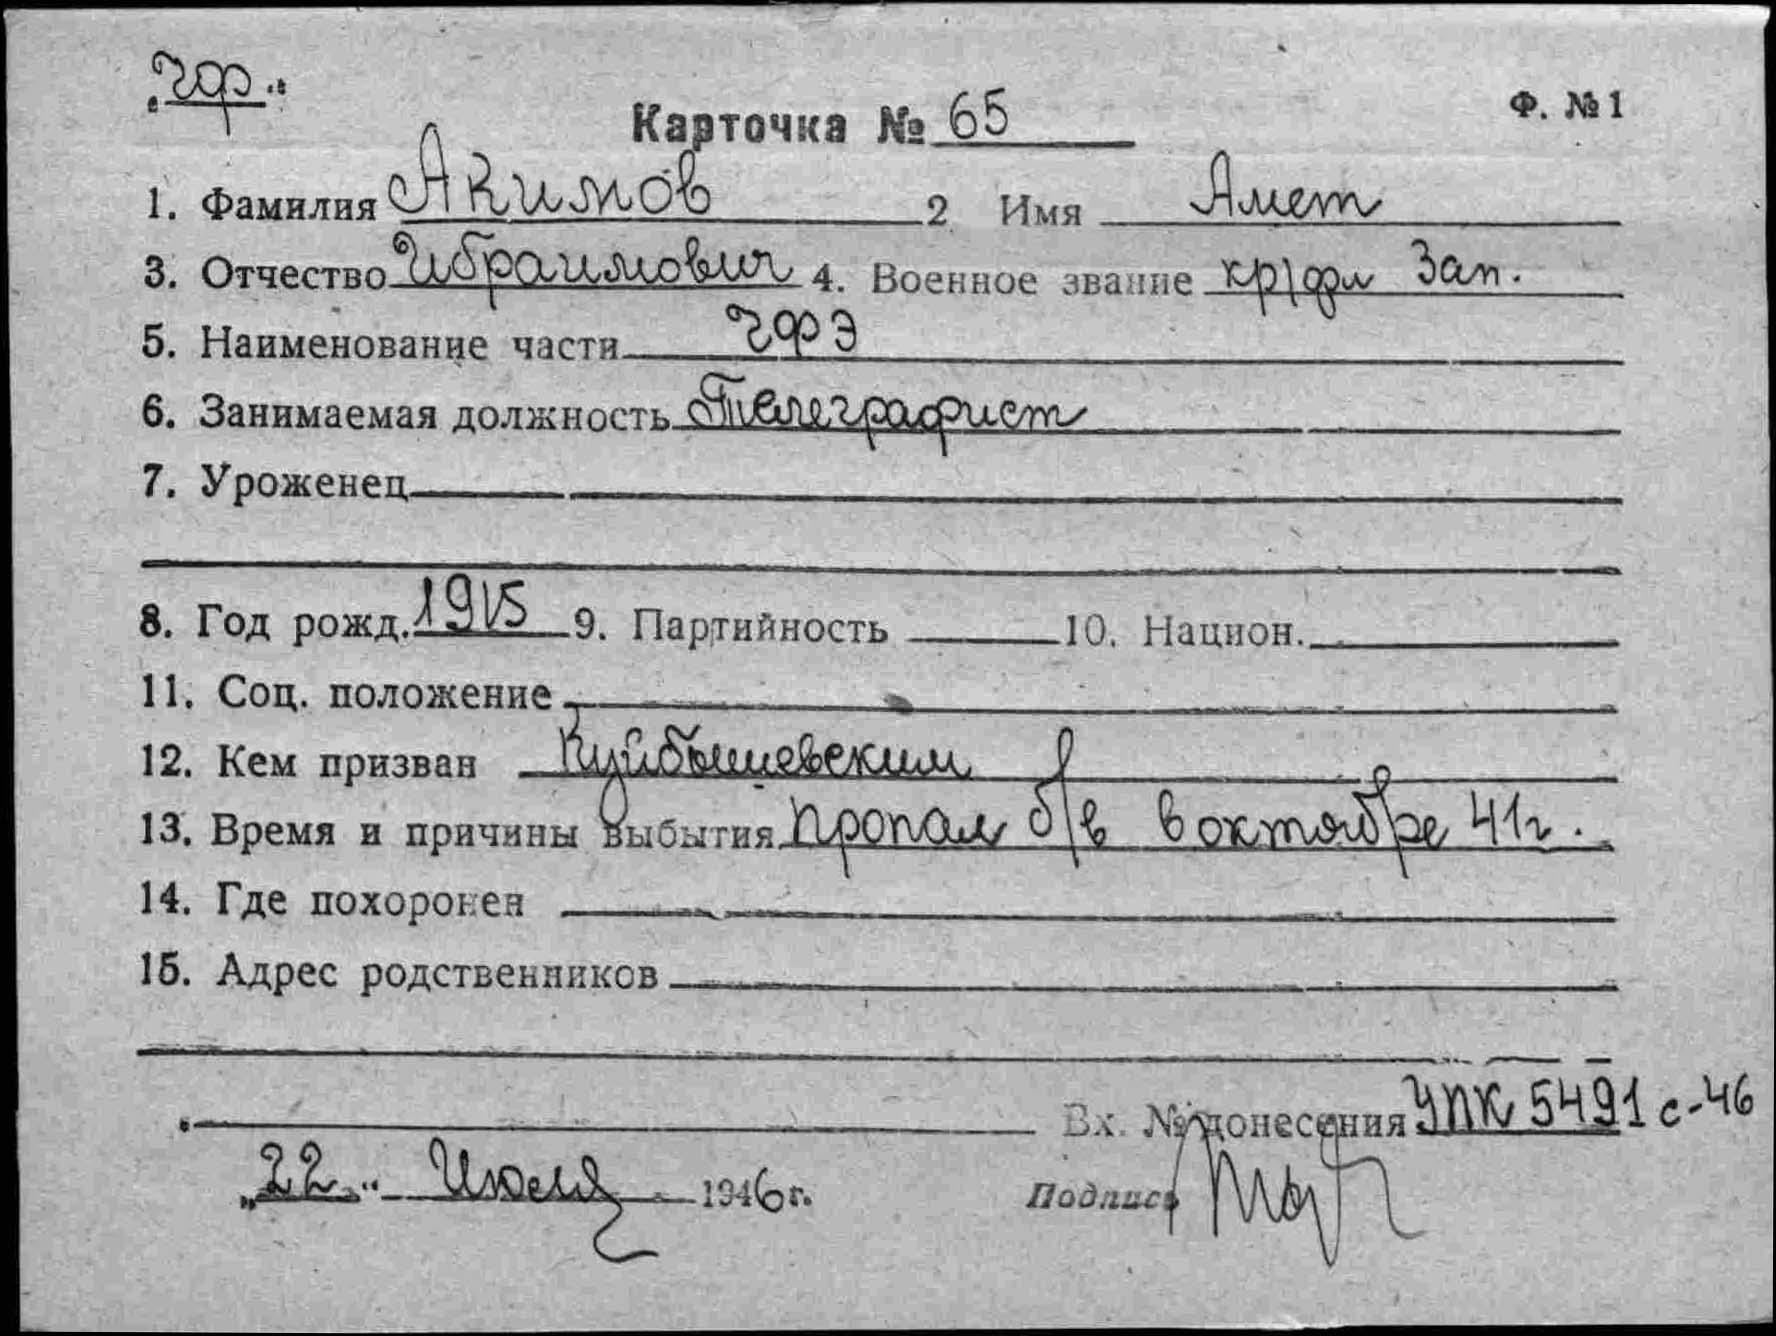 „чф.“
Ф. № 1
Карточка № 65
1. Фамилия Акимов 2 Имя Амет
3. Отчество Ибраимович 4. Военное звание кр/фл Зап.
5. Наименование части ЧФЭ
6. Занимаемая должность Телеграфист
7. Уроженец
8. Год рожд. 1915 9. Партийность 10. Национ.
11. Соц. положение
12. Кем призван Куйбышевским
13. Время и причины выбытия пропал б/в в октябре 41г.
14. Где похоронен
15. Адрес родственников
Вх. № донесения УПК 5491 с-46
„22“ Июля 1946 г. Подпись